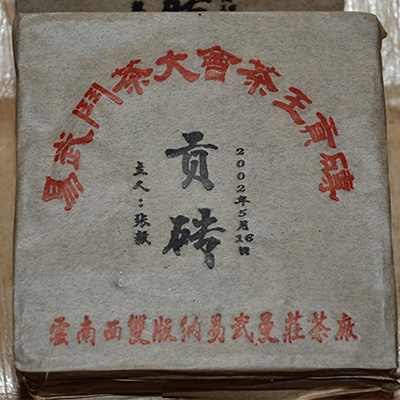 易武鬥茶大會茶王貢磚
2002年5月16日
貢磚
主人：张毅
雲南西雙版納易武曼莊茶廠